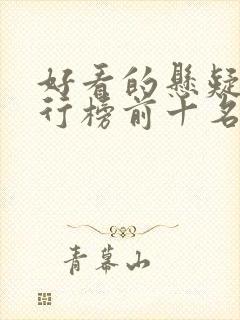 好看的悬疑
行榜前十名
青幕山